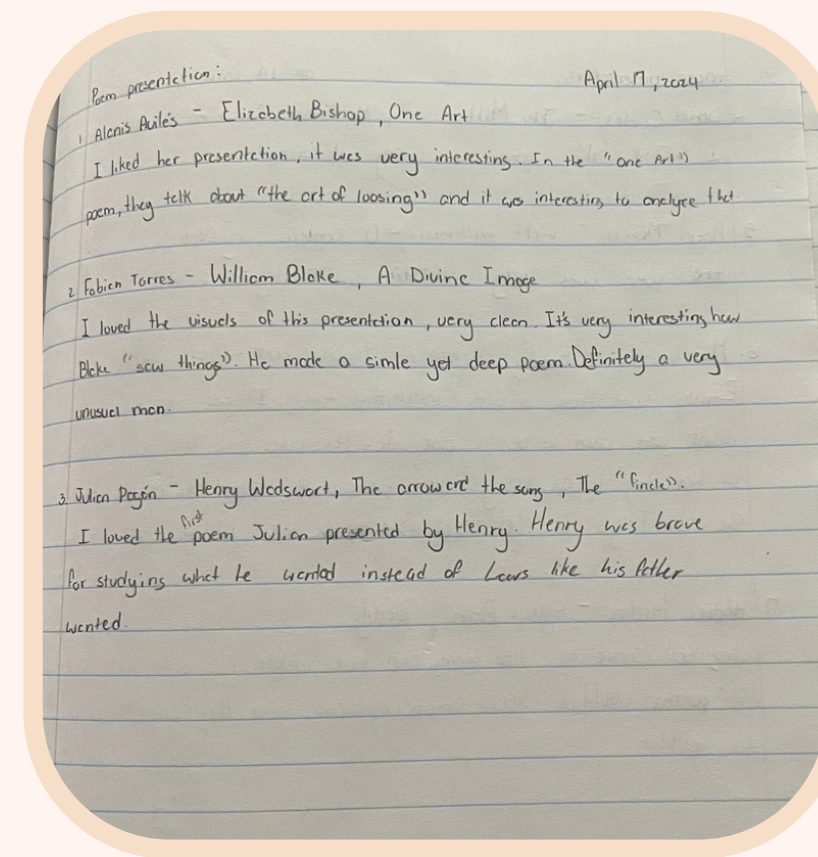 Poem presentation: April 17, 2024
1 Alanis Avilés - Elizabeth Bishop, One Art
I liked her presentation, it was very interesting. In the "One Art"
poem, they talk about "the art of loosing" and it was interesting to analyze that
2 Fabien Torres - William Blake, A Divine Image
I loved the visuals of this presentation, very clean. It's very interesting how
Blake "saw things". He made a simle yet deep poem. Definitely a very
unusual man.
3 Julian Pagán - Henry Wadswort, The arrow and the song, The "finale".
I loved the first poem Julian presented by Henry. Henry was brave
for studying what he wanted instead of Laws like his father
wanted.